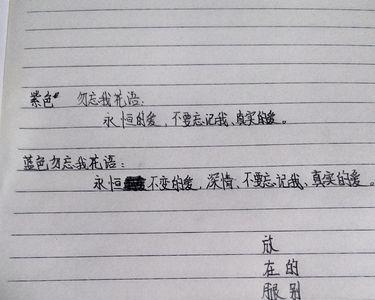 紫色 勿忘我花语：
永恒的爱，不要忘记我、真实的爱。
蓝色勿忘我花语：
永恒不变的爱，深情、不要忘记我、真实的爱。
放
在 的
服 别